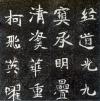 經道光九
寔承明疊
清姿華重
柯飛英曜